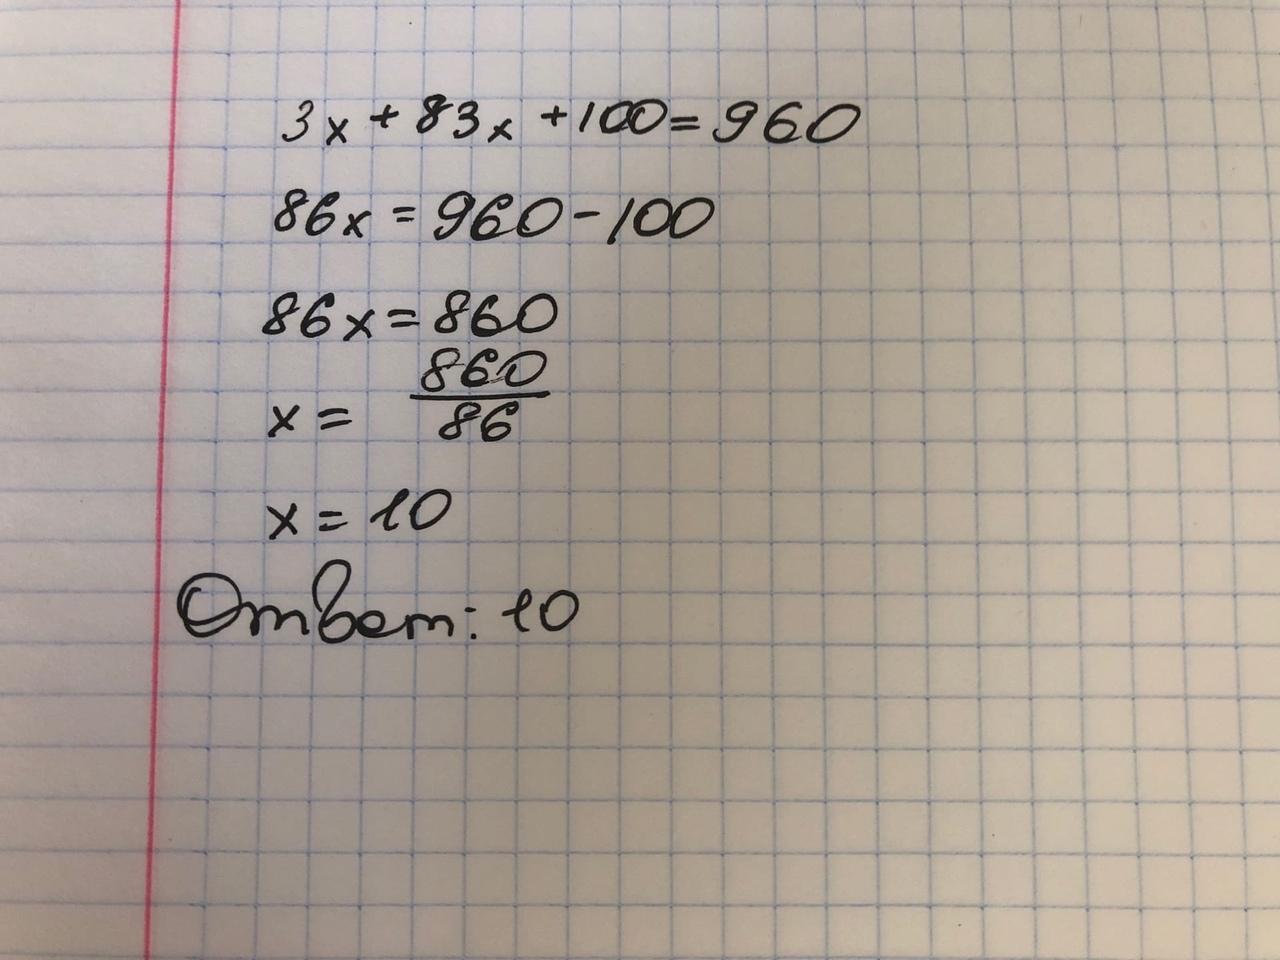 3x + 83x + 100 = 960
86x = 960 - 100
86x = 860
x = 860/86
x = 10
Ответ: 10